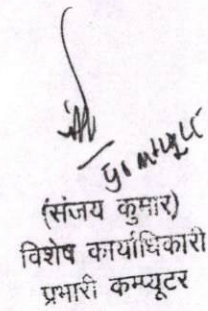 (संजय कुमार)
विशेष कार्याधिकारी
प्रभारी कम्प्यूटर